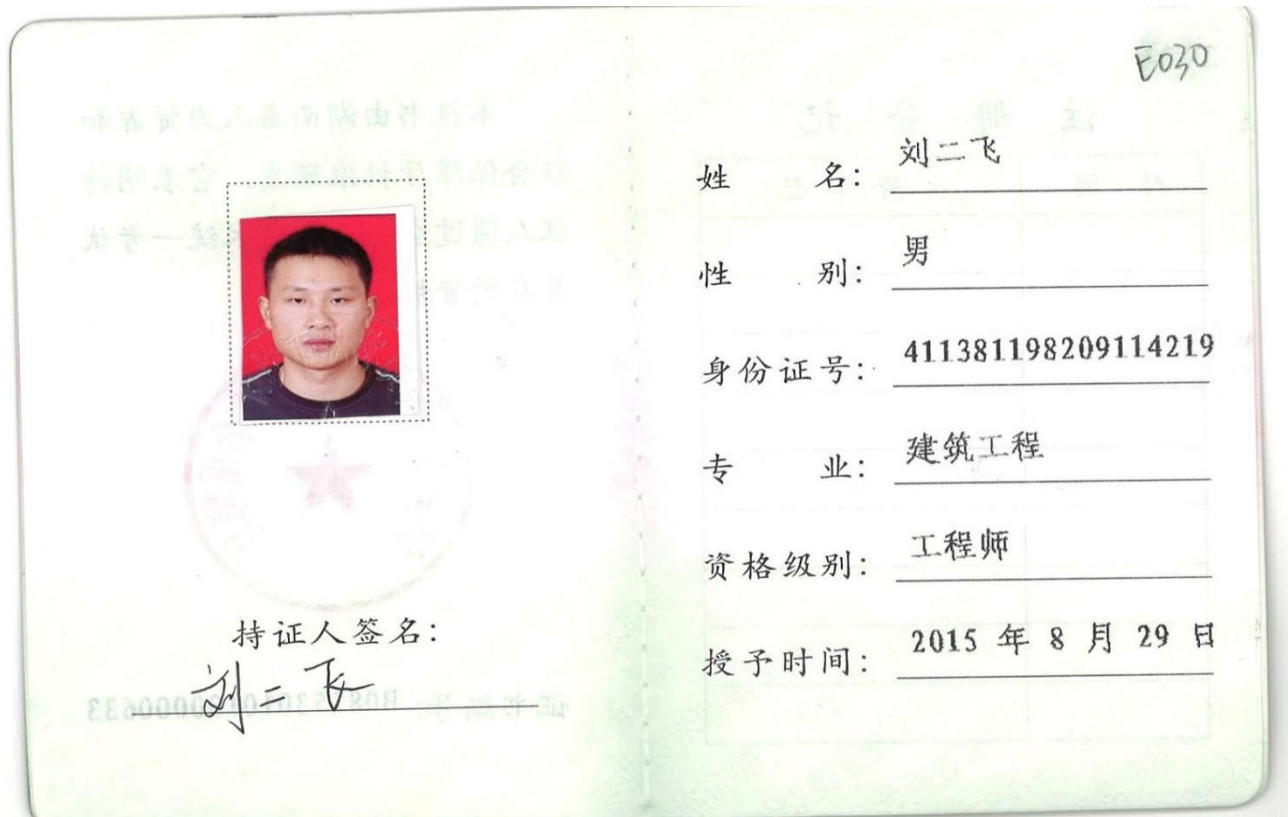 持证人签名：
刘二飞
E030
姓 名：刘二飞
性 别：男
身份证号：411381198209114219
专 业：建筑工程
资格级别：工程师
授予时间：2015 年 8 月 29 日